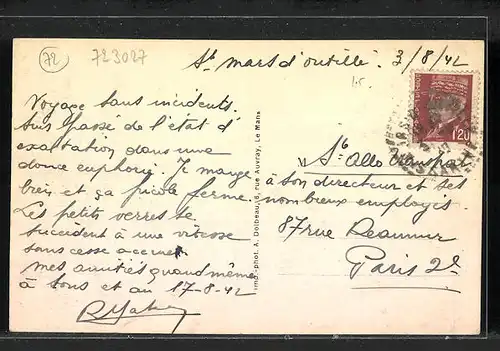 72
723027
St mars d'outillé. 3/8/42
1.5
1F20
Voyage sans incidents.
Suis passé de l'état d'
exaltation dans une
douce euphorie. Je mange
bien et ça picole ferme.
Les petits verres se
succèdent à une vitesse
sans cesse accrue
mes amitiés quand même
à tous et au 17-8-42
Imp.-phot. A. Dolbeau, 6, rue Auvray, Le Mans
Sté
à son directeur et ses
nombreux employés.
87 rue Réaumur
Paris 2e